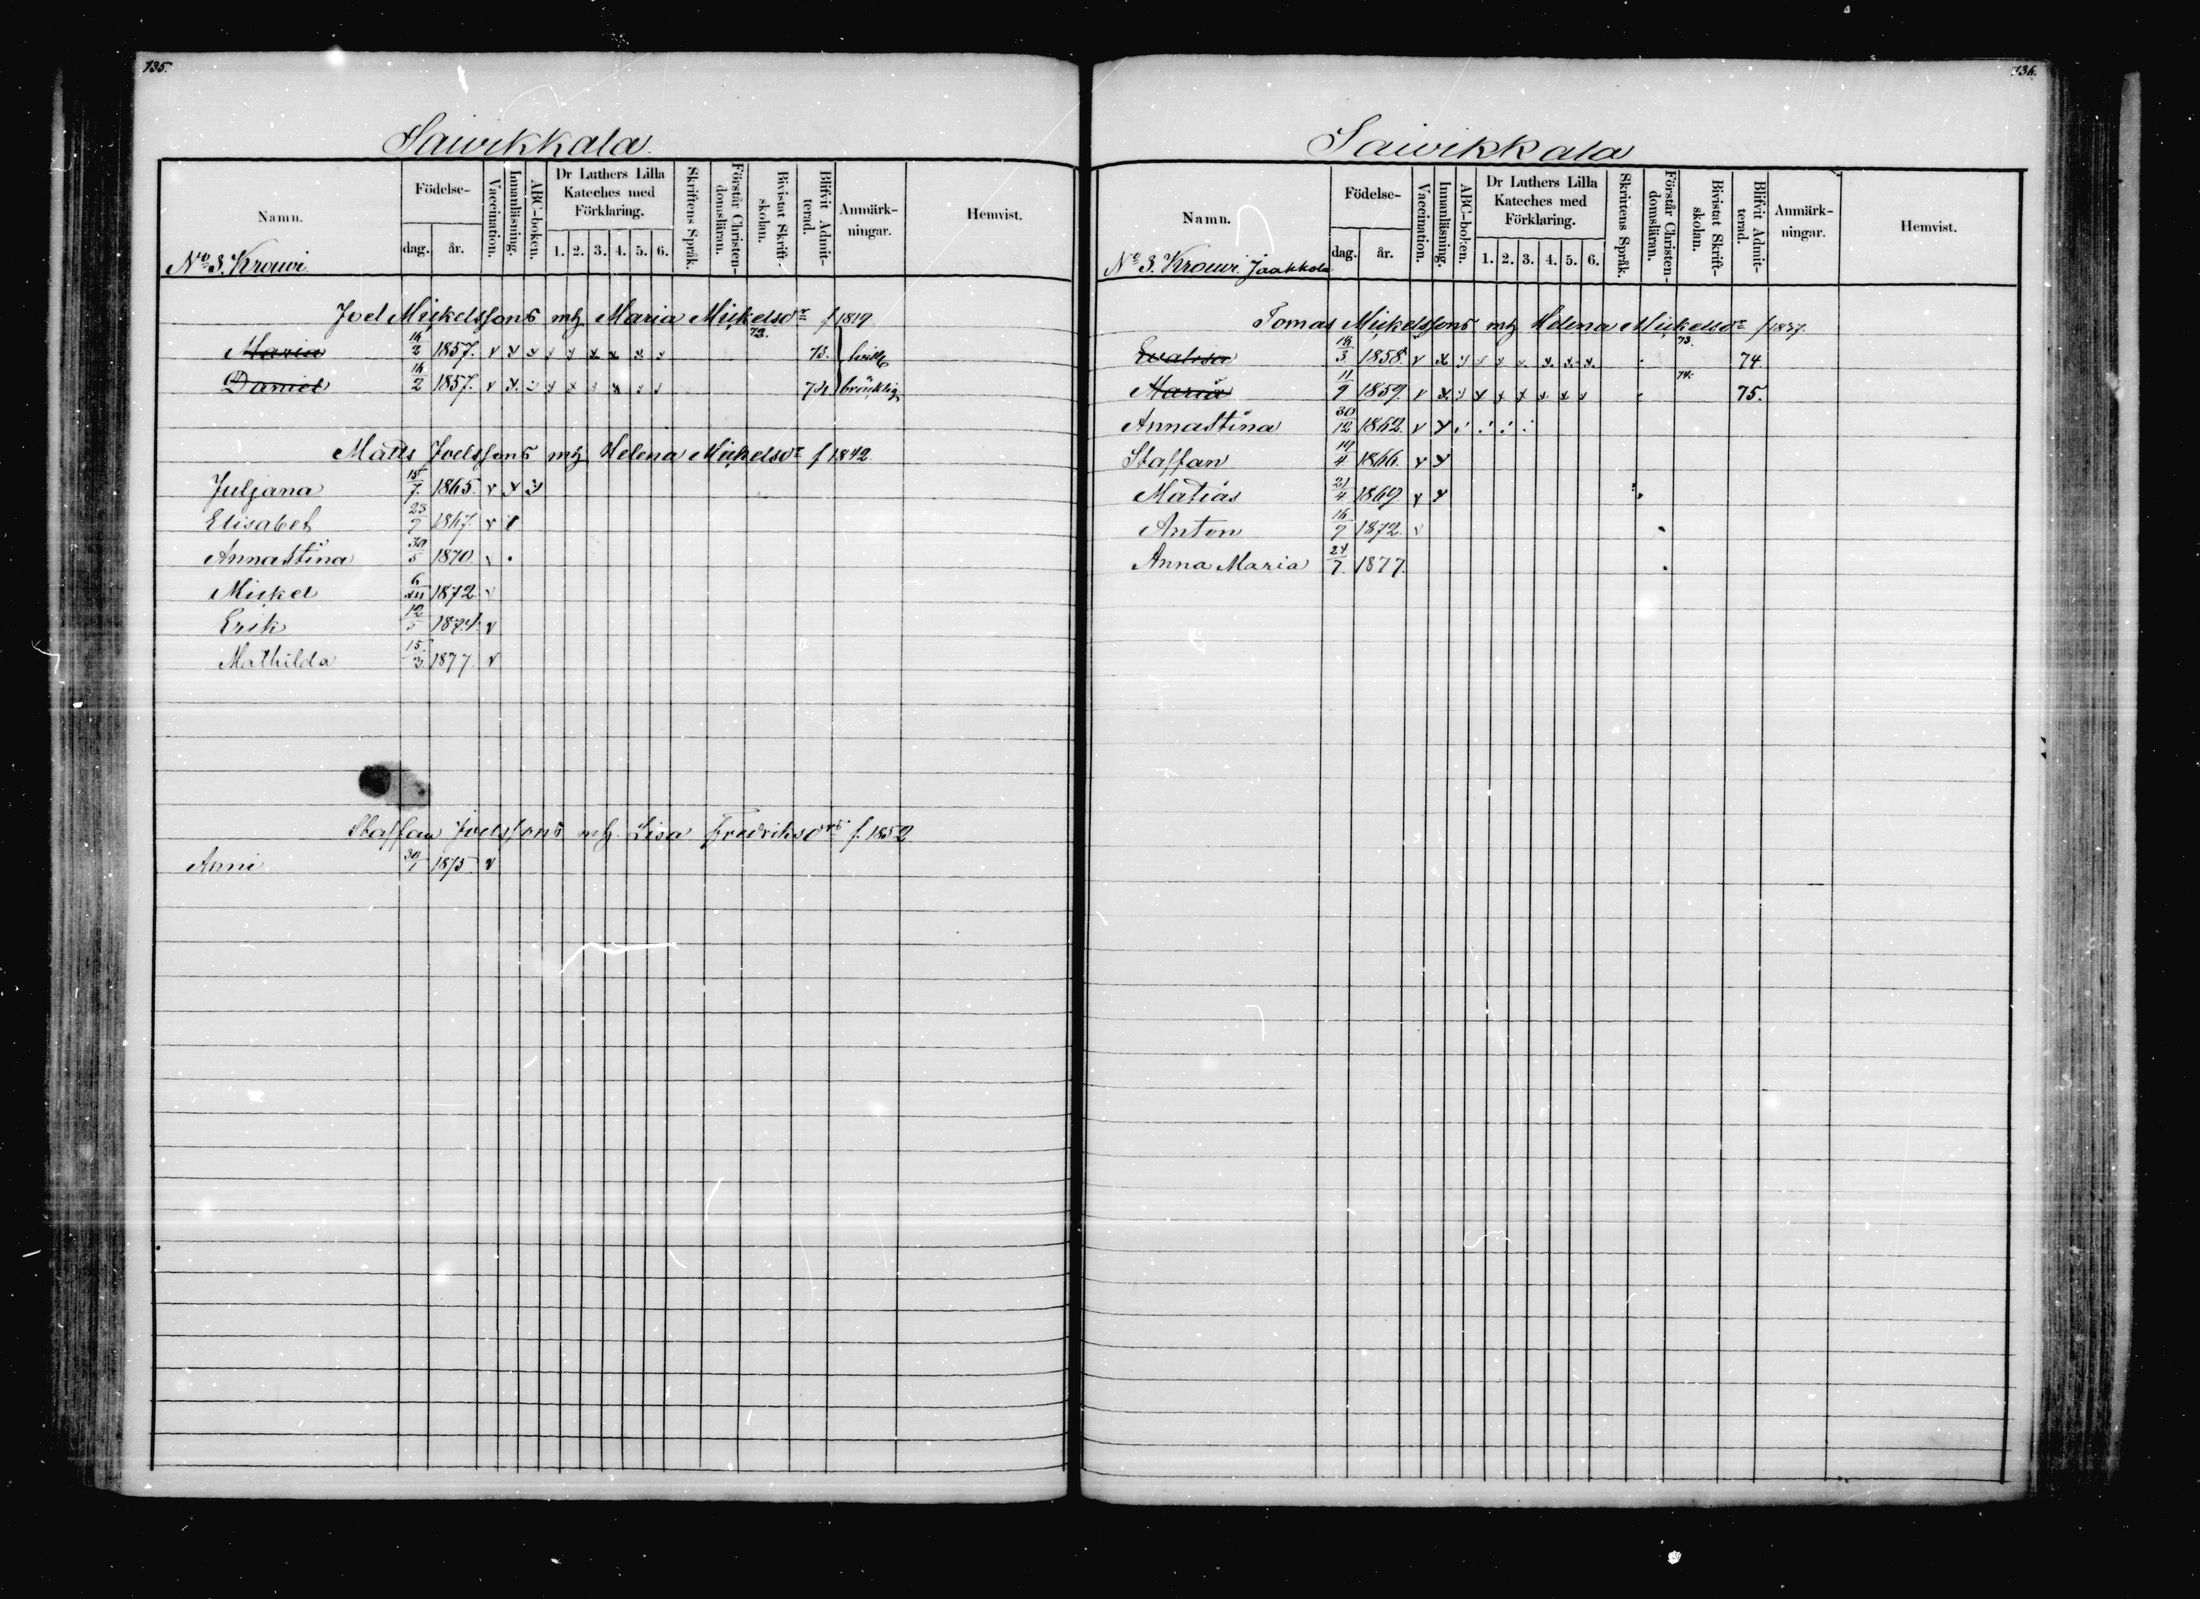 135.
Saivikkala
Namn.
Födelse-
dag. år.
Vaccination.
Innanläsning.
ABC-boken.
Dr Luthers Lilla Kateches med Förklaring.
1. 2. 3. 4. 5. 6.
Skriftens Språk.
Förstår Christen-domsläran.
Bivistat Skrift-skolan.
Blifvit Admit-terad.
Anmärk-ningar.
Hemvist.
No 3. Krouvi
Joel Mickelssons m h Maria Mickelsdr f 1819
Maria 16/2 1857. v 73. 73.
Daniel 16/2 1857. v 74. bräcklig
Matts Joelssons m h Helena Mickelsdr f 1842
Juljana 15/7 1865. v
Elisabet 23/9 1867. v
Annastina 30/5 1870 v
Mickel 6/ 1872 v
Erik 12/5 1874. v
Mathilda 15/3 1877. v
Staffan Joelssons m h Lisa Fredriksdr f. 1852
Anni 30/1 1875. v
136.
Saivikkala
Namn.
Födelse-
dag. år.
Vaccination.
Innanläsning.
ABC-boken.
Dr Luthers Lilla Kateches med Förklaring.
1. 2. 3. 4. 5. 6.
Skriftens Språk.
Förstår Christen-domsläran.
Bivistat Skrift-skolan.
Blifvit Admit-terad.
Anmärk-ningar.
Hemvist.
No 3. Krouvi. Jaakkola
Tomas Mickelssons m h Helena Mickelsdr f 1837.
Evalisa 16/3 1858 v 73. 74.
Maria 11/9 1859. v 74. 75.
Annastina 30/12 1862. v
Staffan 19/4 1866. v
Matias 21/4 1869. v
Anton 16/9 1872. v
Anna Maria 24/7. 1877.